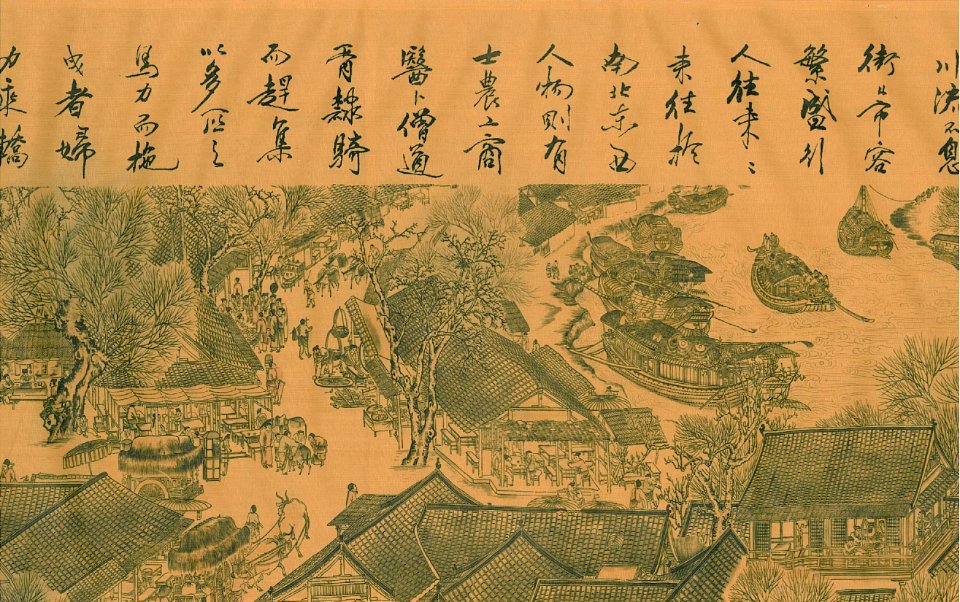 川流不息
街市容
繁盛引
人往来々
来往於
南北东西
人物则有
士農工商
醫卜僧道
胥隸騎
而趕集
以多之
馬力而拖
或者婦
力乘轎